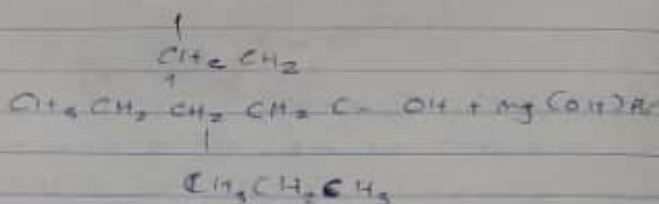 CH2 CH2
CH3 CH2 CH2 CH2 C - OH + mg (OH) Br
CH3 CH2 CH3